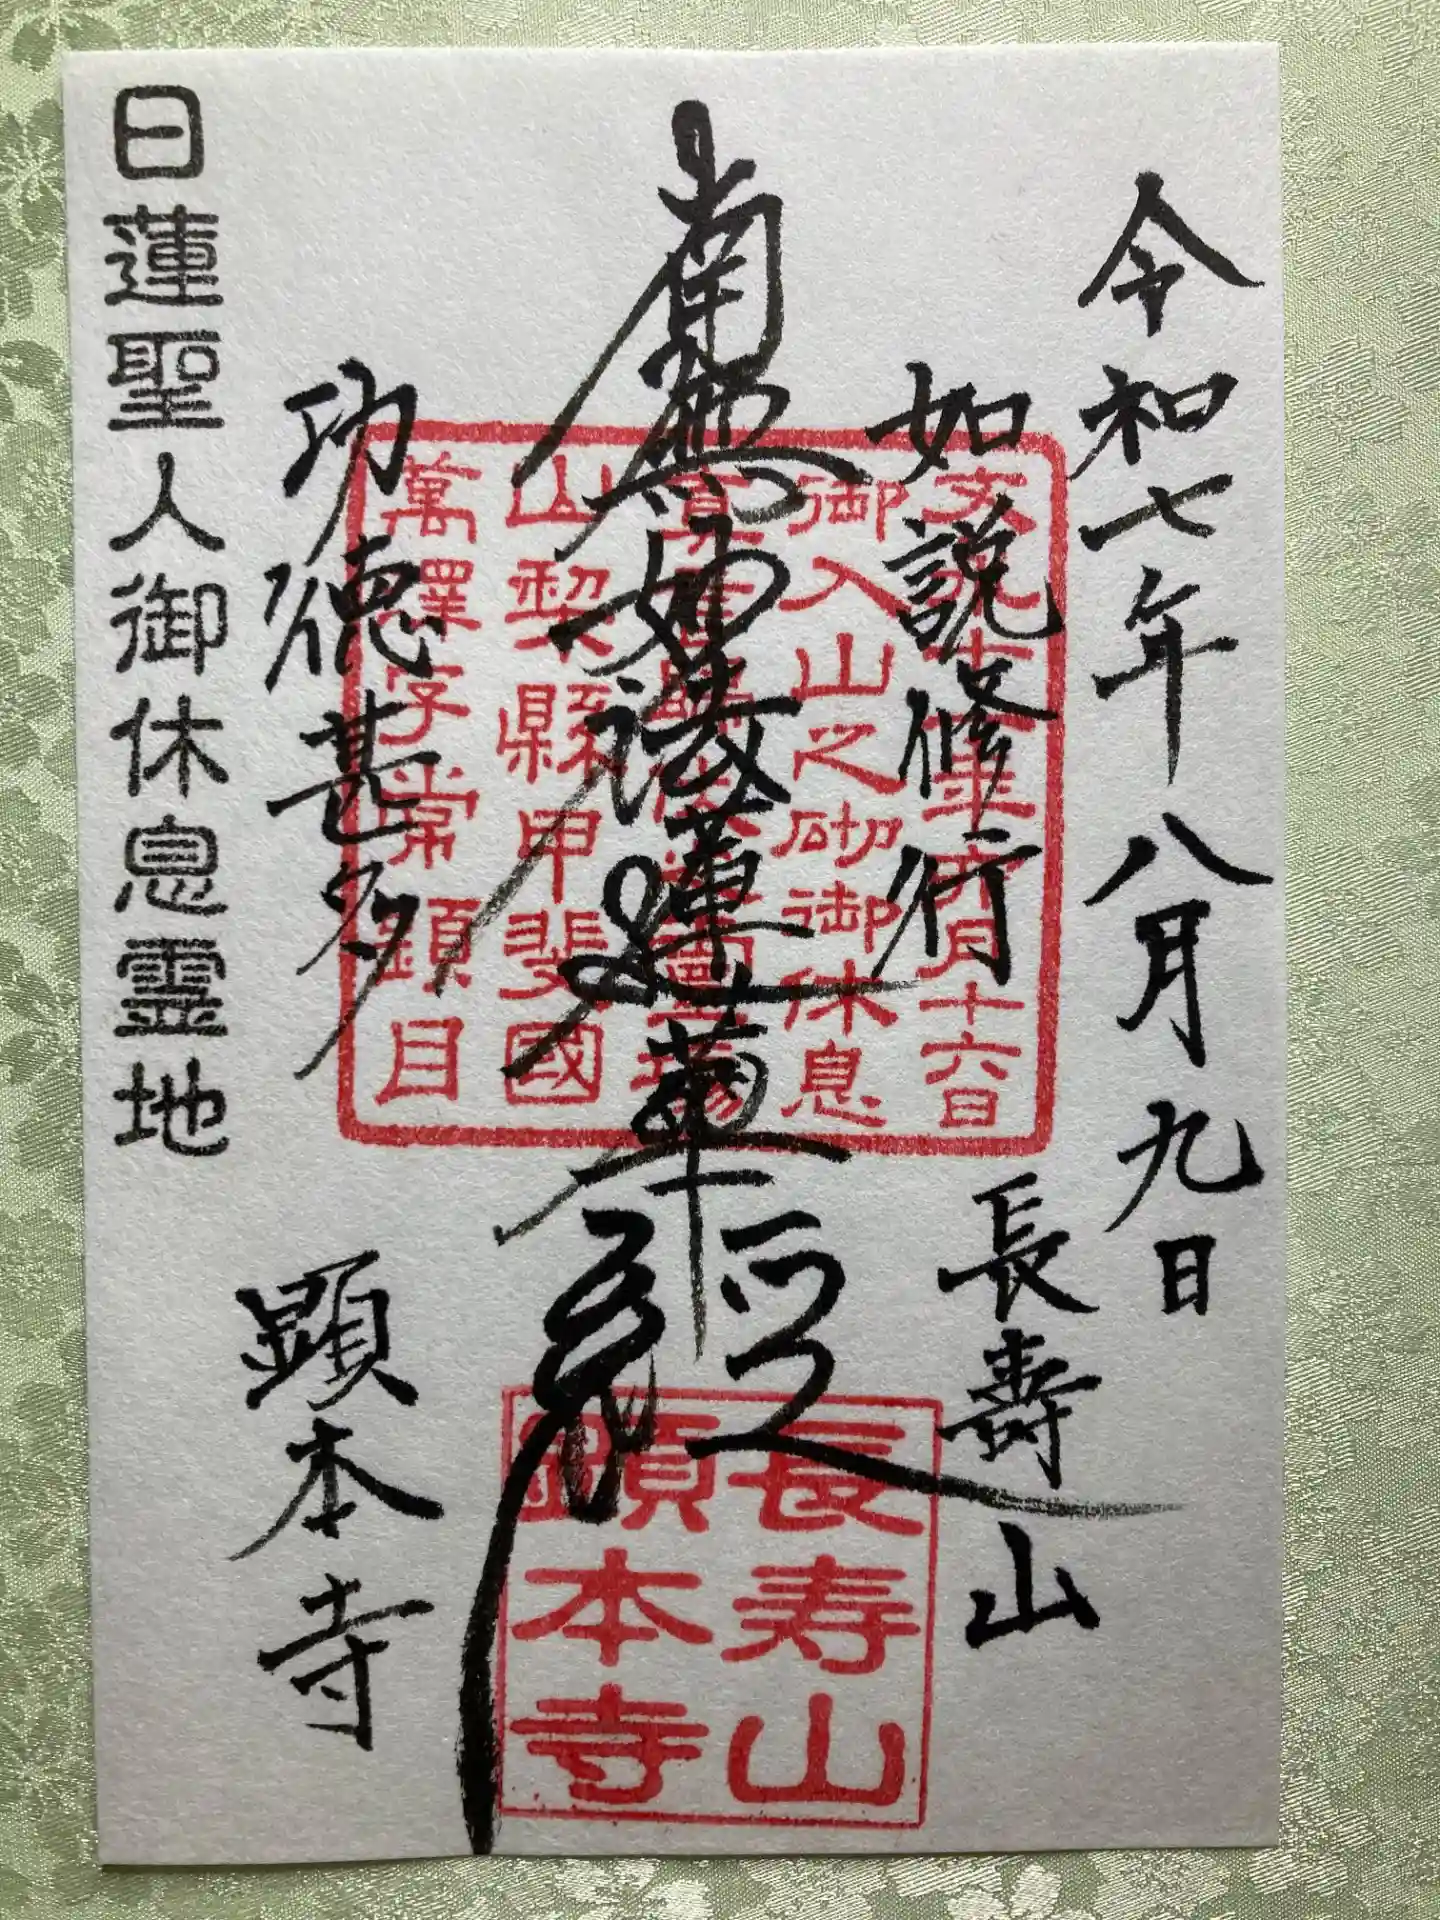 令和七年八月九日
如説修行
長壽山
南無妙法蓮華経
功徳甚多
顕本寺
日蓮聖人御休息霊地
月十六日
御入山之砌御休息
山梨縣甲斐國
萬澤字常題目
長寿山
顕本寺